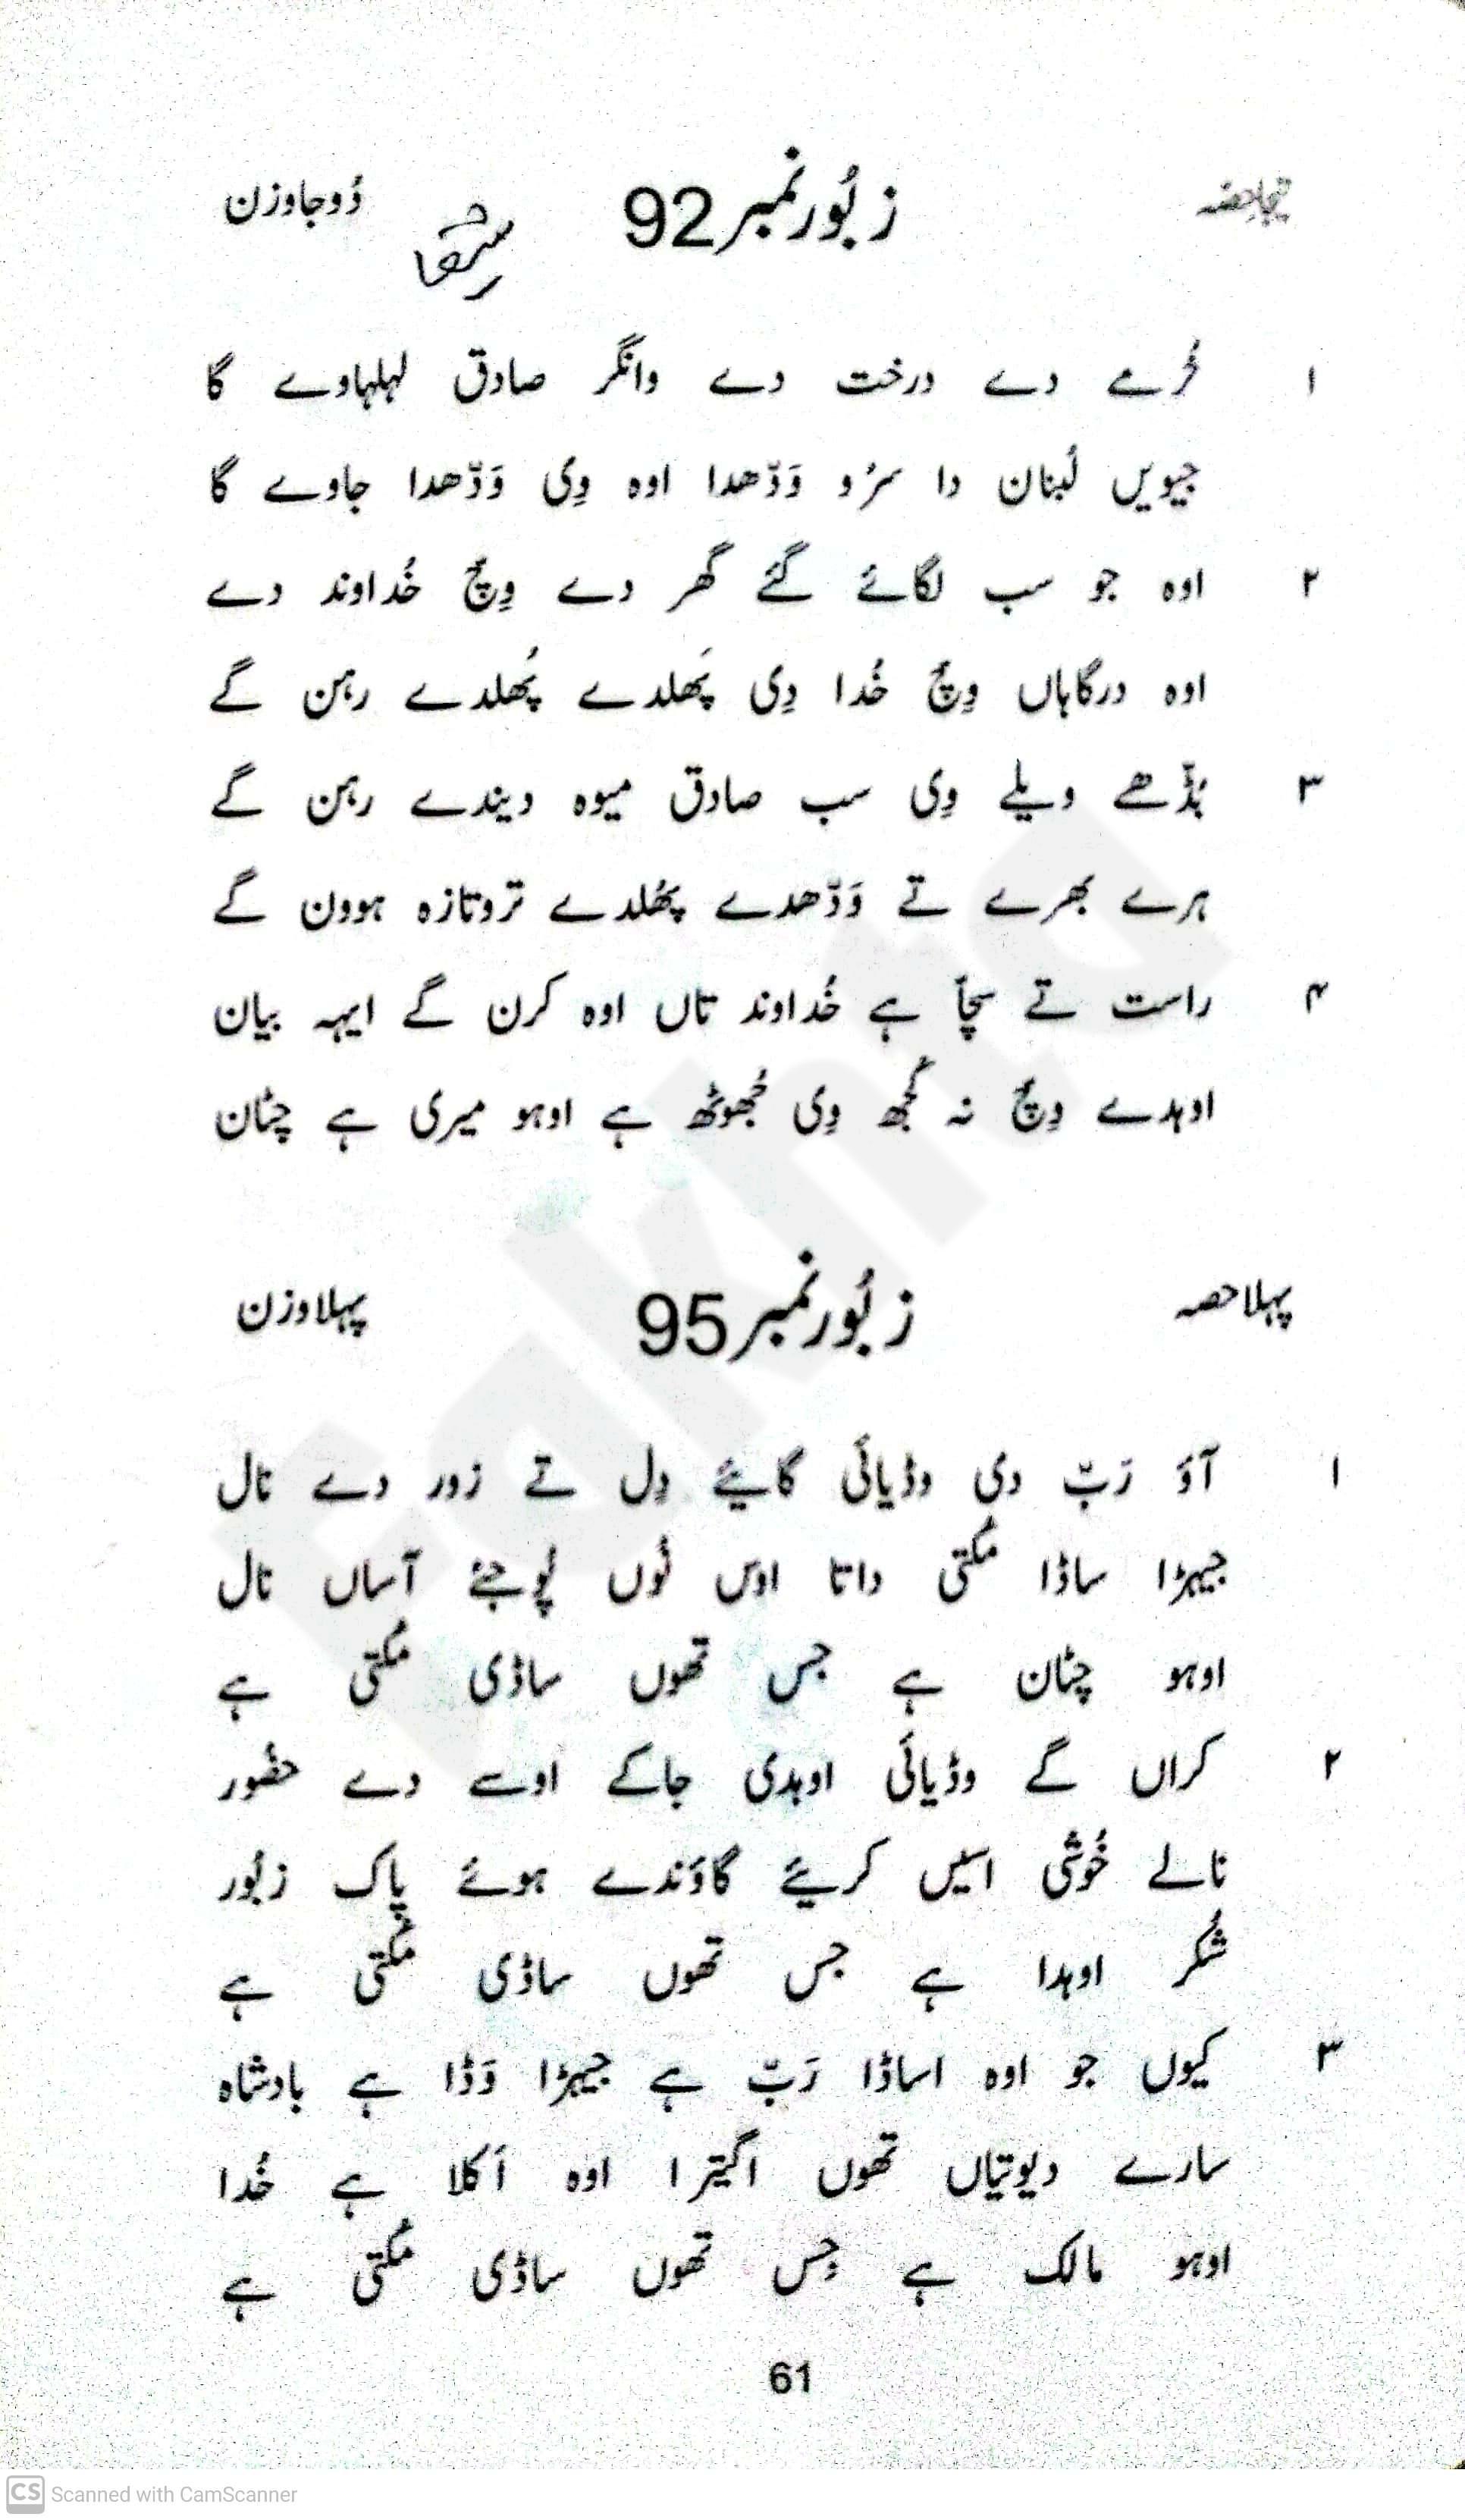 تیجا حصّہ زبُور نمبر 92 دُوجا وزن
۱ خُرمے دے درخت دے وانگر صادق لہلہاوے گا
جیویں لُبنان دا سرُو وَدّھدا اوہ وِی وَدّھدا جاوے گا
۲ اوہ جو سب لگائے گئے گھر دے وِچّ خُداوند دے
اوہ درگاہاں وِچّ خُدا دِی پَھلدے پُھلدے رہن گے
۳ بُڈّھے ویلے وِی سب صادق میوہ دیندے رہن گے
ہرے بھرے تے وَدّھدے پھُلدے تروتازہ ہوون گے
۴ راست تے سچّا ہے خُداوند تاں اوہ کرن گے ایہہ بیان
اوہدے وِچّ نہ کُجھ وِی جُھوٹھ ہے اوہو میری ہے چٹان
پہلا حصہ زبُور نمبر 95 پہلا وزن
۱ آؤ رَبّ دی وڈیائی گایئے دِل تے زور دے نال
جیہڑا ساڈا مُکتی داتا اوس نُوں پُوجئے آساں نال
اوہو چٹان ہے جس تھوں ساڈی مُکتی ہے
۲ کراں گے وڈیائی اوہدی جاکے اوسے دے حضُور
نالے خُوشی اسیں کریئے گاؤندے ہوئے پاک زبُور
شُکر اوہدا ہے جس تھوں ساڈی مُکتی ہے
۳ کیوں جو اوہ اساڈا رَبّ ہے جیہڑا وَڈا ہے بادشاہ
سارے دیوتیاں تھوں اگیترا اوہ اَکلا ہے خُدا
اوہو مالک ہے جِس تھوں ساڈی مُکتی ہے
61
CS Scanned with CamScanner